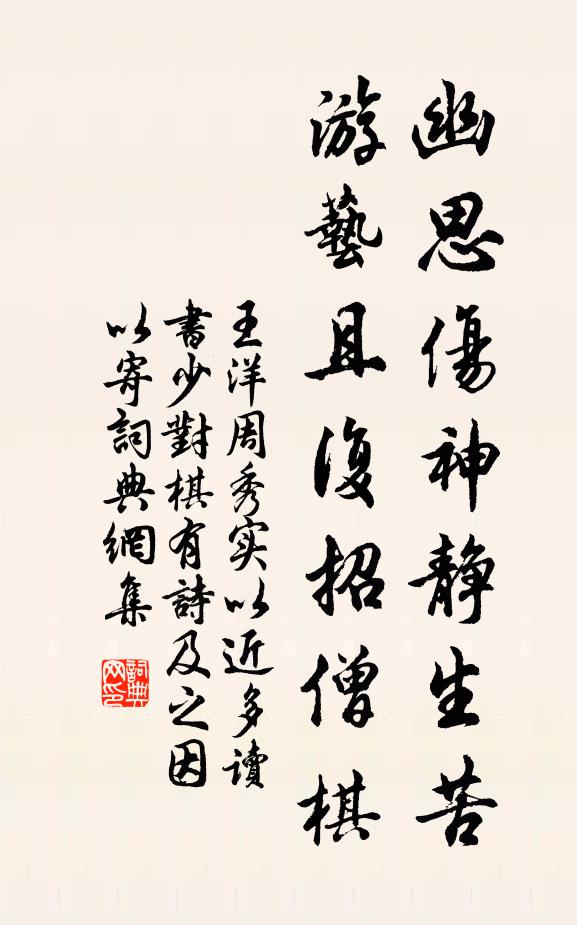 幽思傷神静生苦
游藝且復招僧棋
王洋周秀实以近多讀
書少對棋有詩及之因
以寄詞典網集
詞典网印